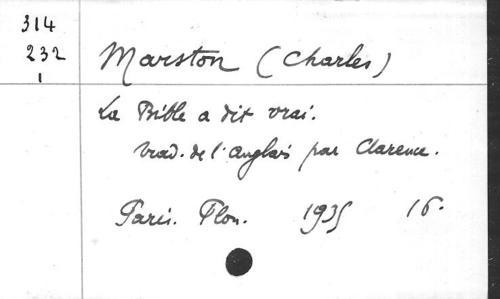 314
232
1
Marston (Charles)
La Bible a dit vrai.
trad. de l'anglais par Clarence.
Paris. Plon. 1935 16.